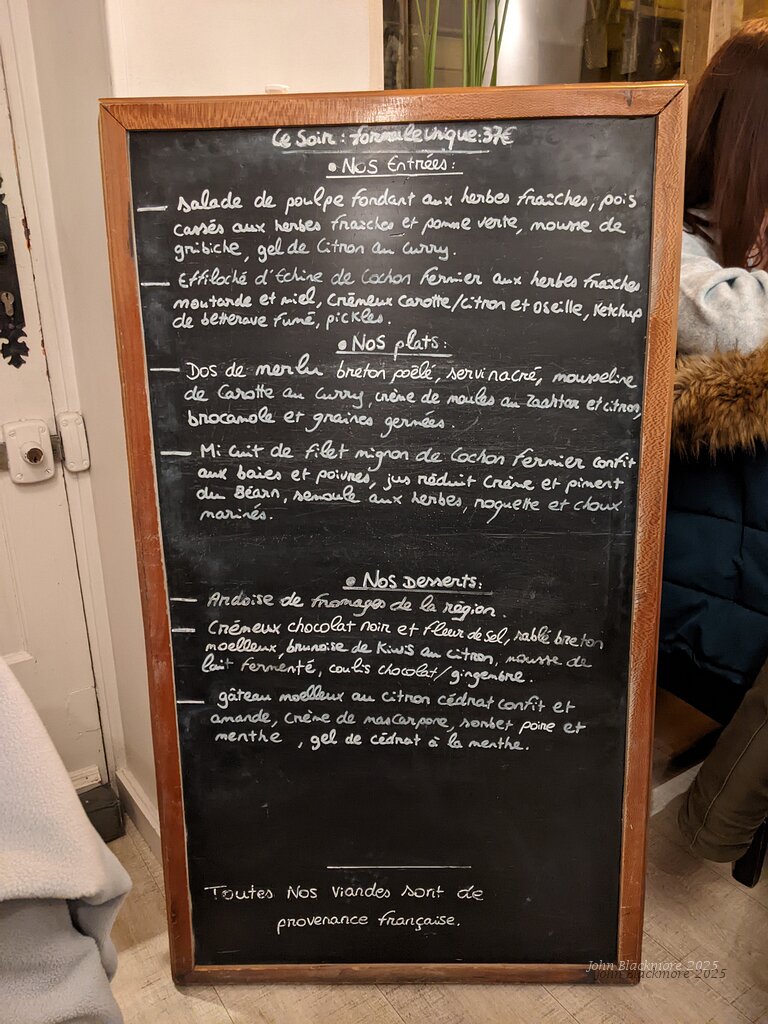 Ce Soir : formule unique : 37€
• Nos Entrées :
— Salade de poulpe fondant aux herbes fraîches, pois
cassés aux herbes fraîches et pomme verte, mousse de
gribiche, gel de Citron au Curry.
— Effiloché d'Echine de Cochon fermier aux herbes fraîches
moutarde et miel, Crémeux Carotte/citron et Oseille, Ketchup
de betterave fumé, pickles.
• Nos plats :
— Dos de merlu breton poêlé, servi nacré, mousseline
de Carotte au Curry, crème de moules au Zaahtar et citron,
brocamole et graines germées.
— Mi cuit de filet mignon de Cochon fermier confit
aux baies et poivres, jus réduit Crème et piment
du Béarn, semoule aux herbes, roquette et choux
marinés.
• Nos Desserts :
— Ardoise de fromages de la région.
— Crémeux chocolat noir et fleur de sel, sablé breton
moelleux, brunoise de Kiwis au citron, mousse de
lait fermenté, coulis chocolat/gingembre.
— gâteau moelleux au citron cédrat confit et
amande, Crème de mascarpone, sorbet poire et
menthe , gel de cédrat à la menthe.
Toutes Nos viandes sont de
provenance française.
John Blackmore 2025
John Blackmore 2025